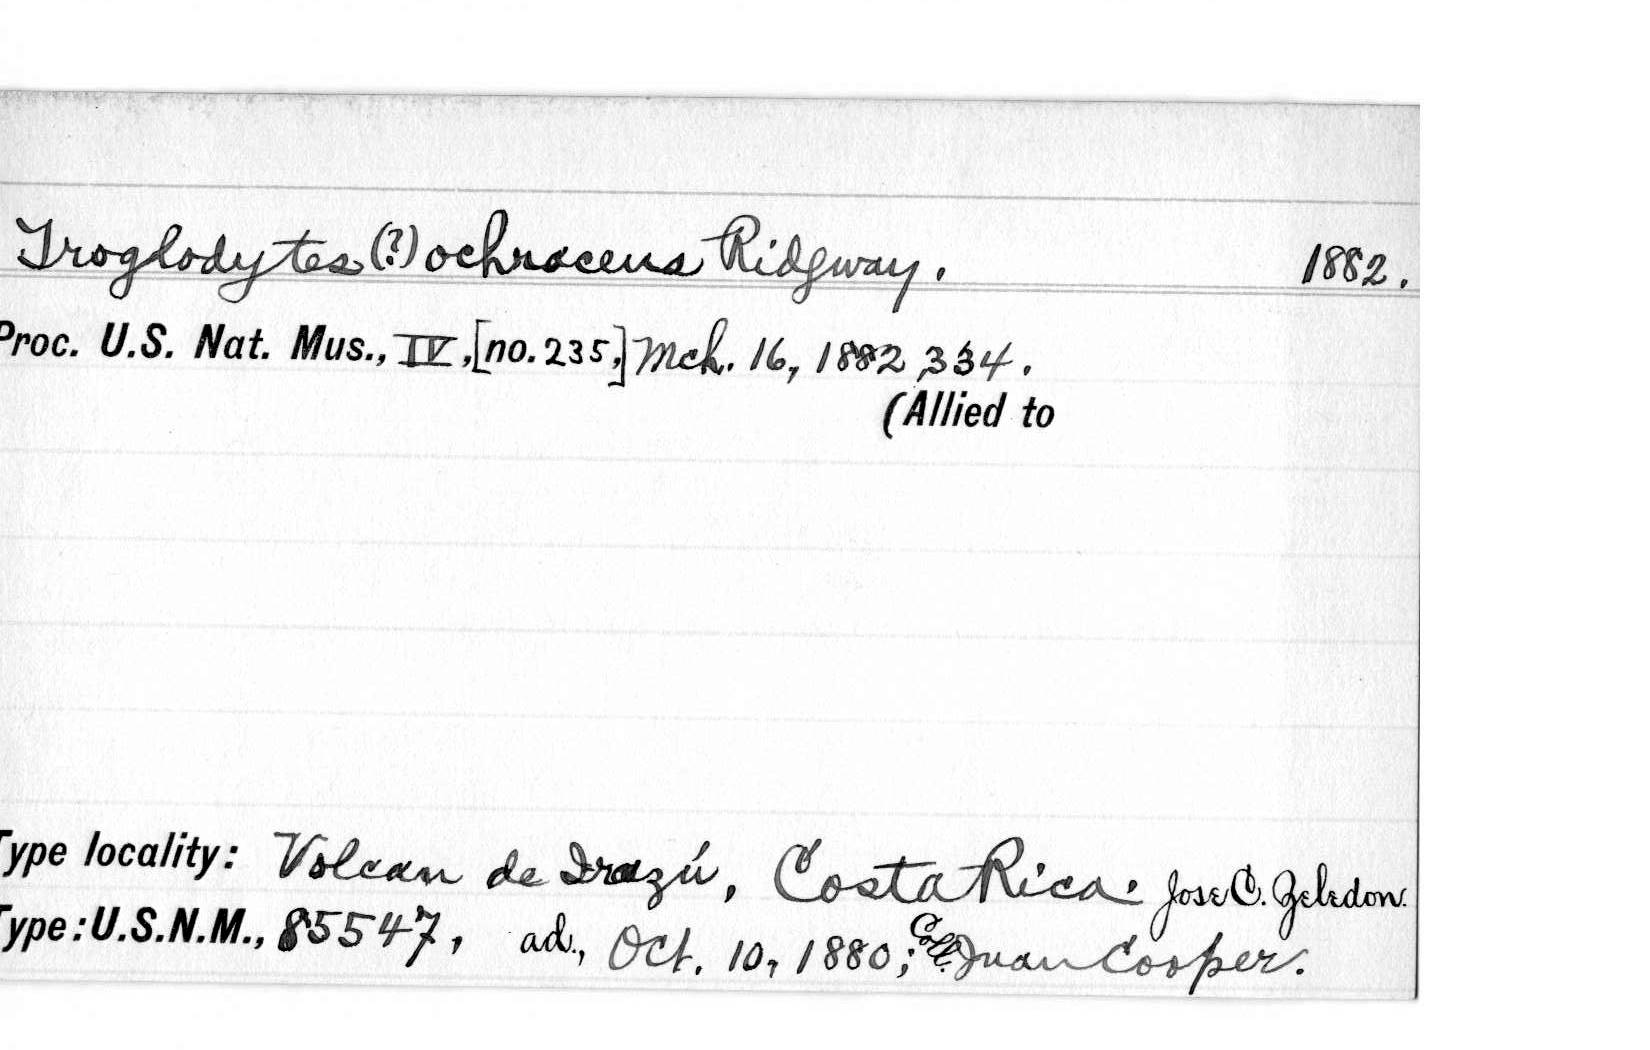 Troglodytes (?) ochraceus Ridgway. 1882.
Proc. U.S. Nat. Mus., IV, [no. 235,] Mch. 16, 1882, 334.
(Allied to
Type locality: Volcan de Irazú, Costa Rica. Jose C. Zeledon.
Type: U.S.N.M., 85547, ad., Oct. 10, 1880; Coll. Juan Cooper.